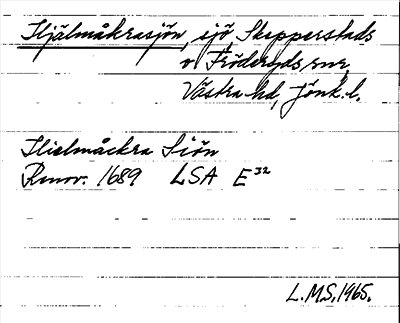 Hjälmåkrasjön, sjö Skepperstads
o Fröderyds snr,
Västra hd, Jönk. l.
Hielmåckra Siön
Renov. 1689 LSA E³²
L.M.S. 1965.